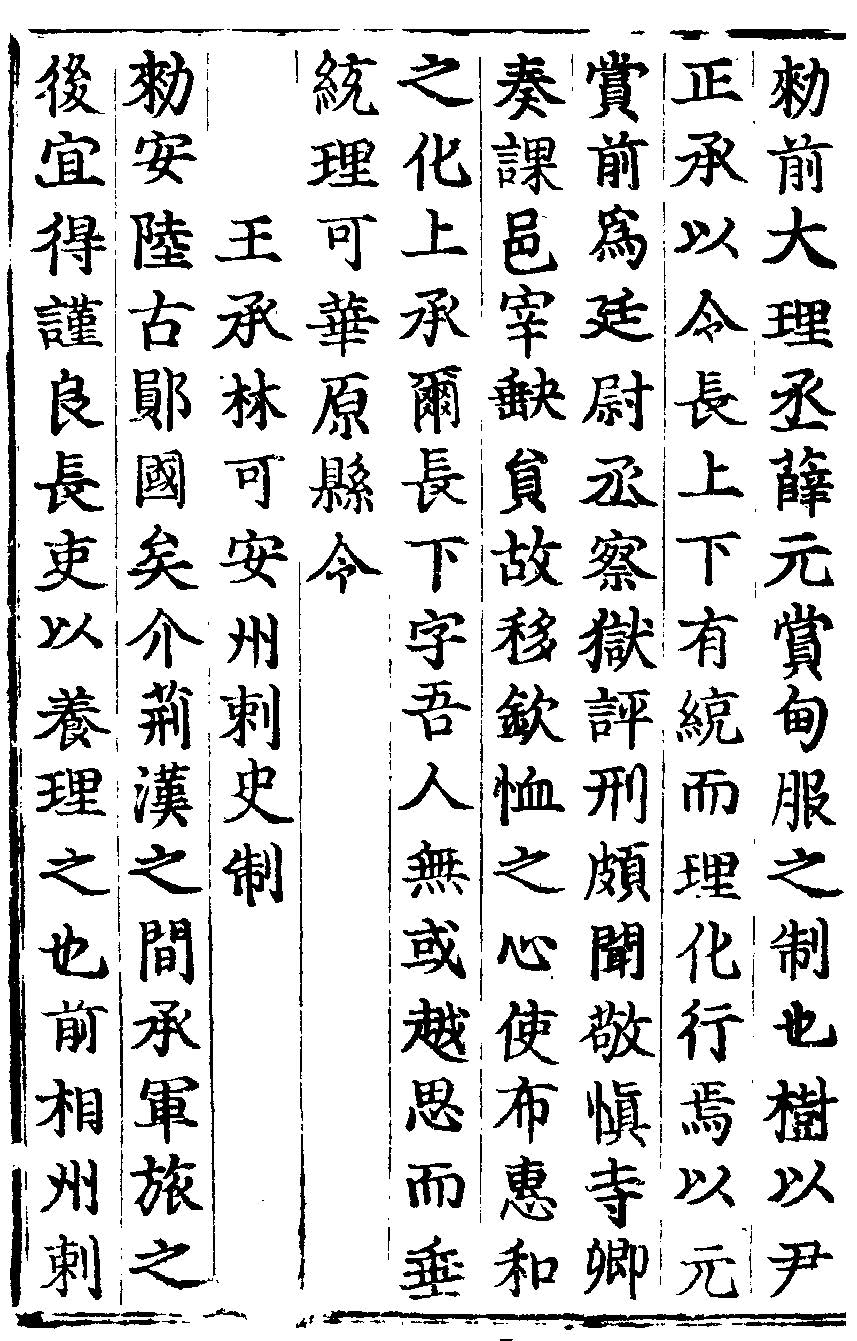 勑前大理丞薛元賞甸服之制也樹以尹
正承以令長上下有統而理化行焉以元
賞前爲廷尉丞察獄評刑頗聞敬愼寺卿
奏課邑宰缺員故移欽恤之心使布惠和
之化上承爾長下字吾人無或越思而垂
統理可華原縣令
王承林可安州刺史制
勑安陸古鄖國矣介荊漢之間承軍旅之
後宜得謹良長吏以養理之也前相州刺